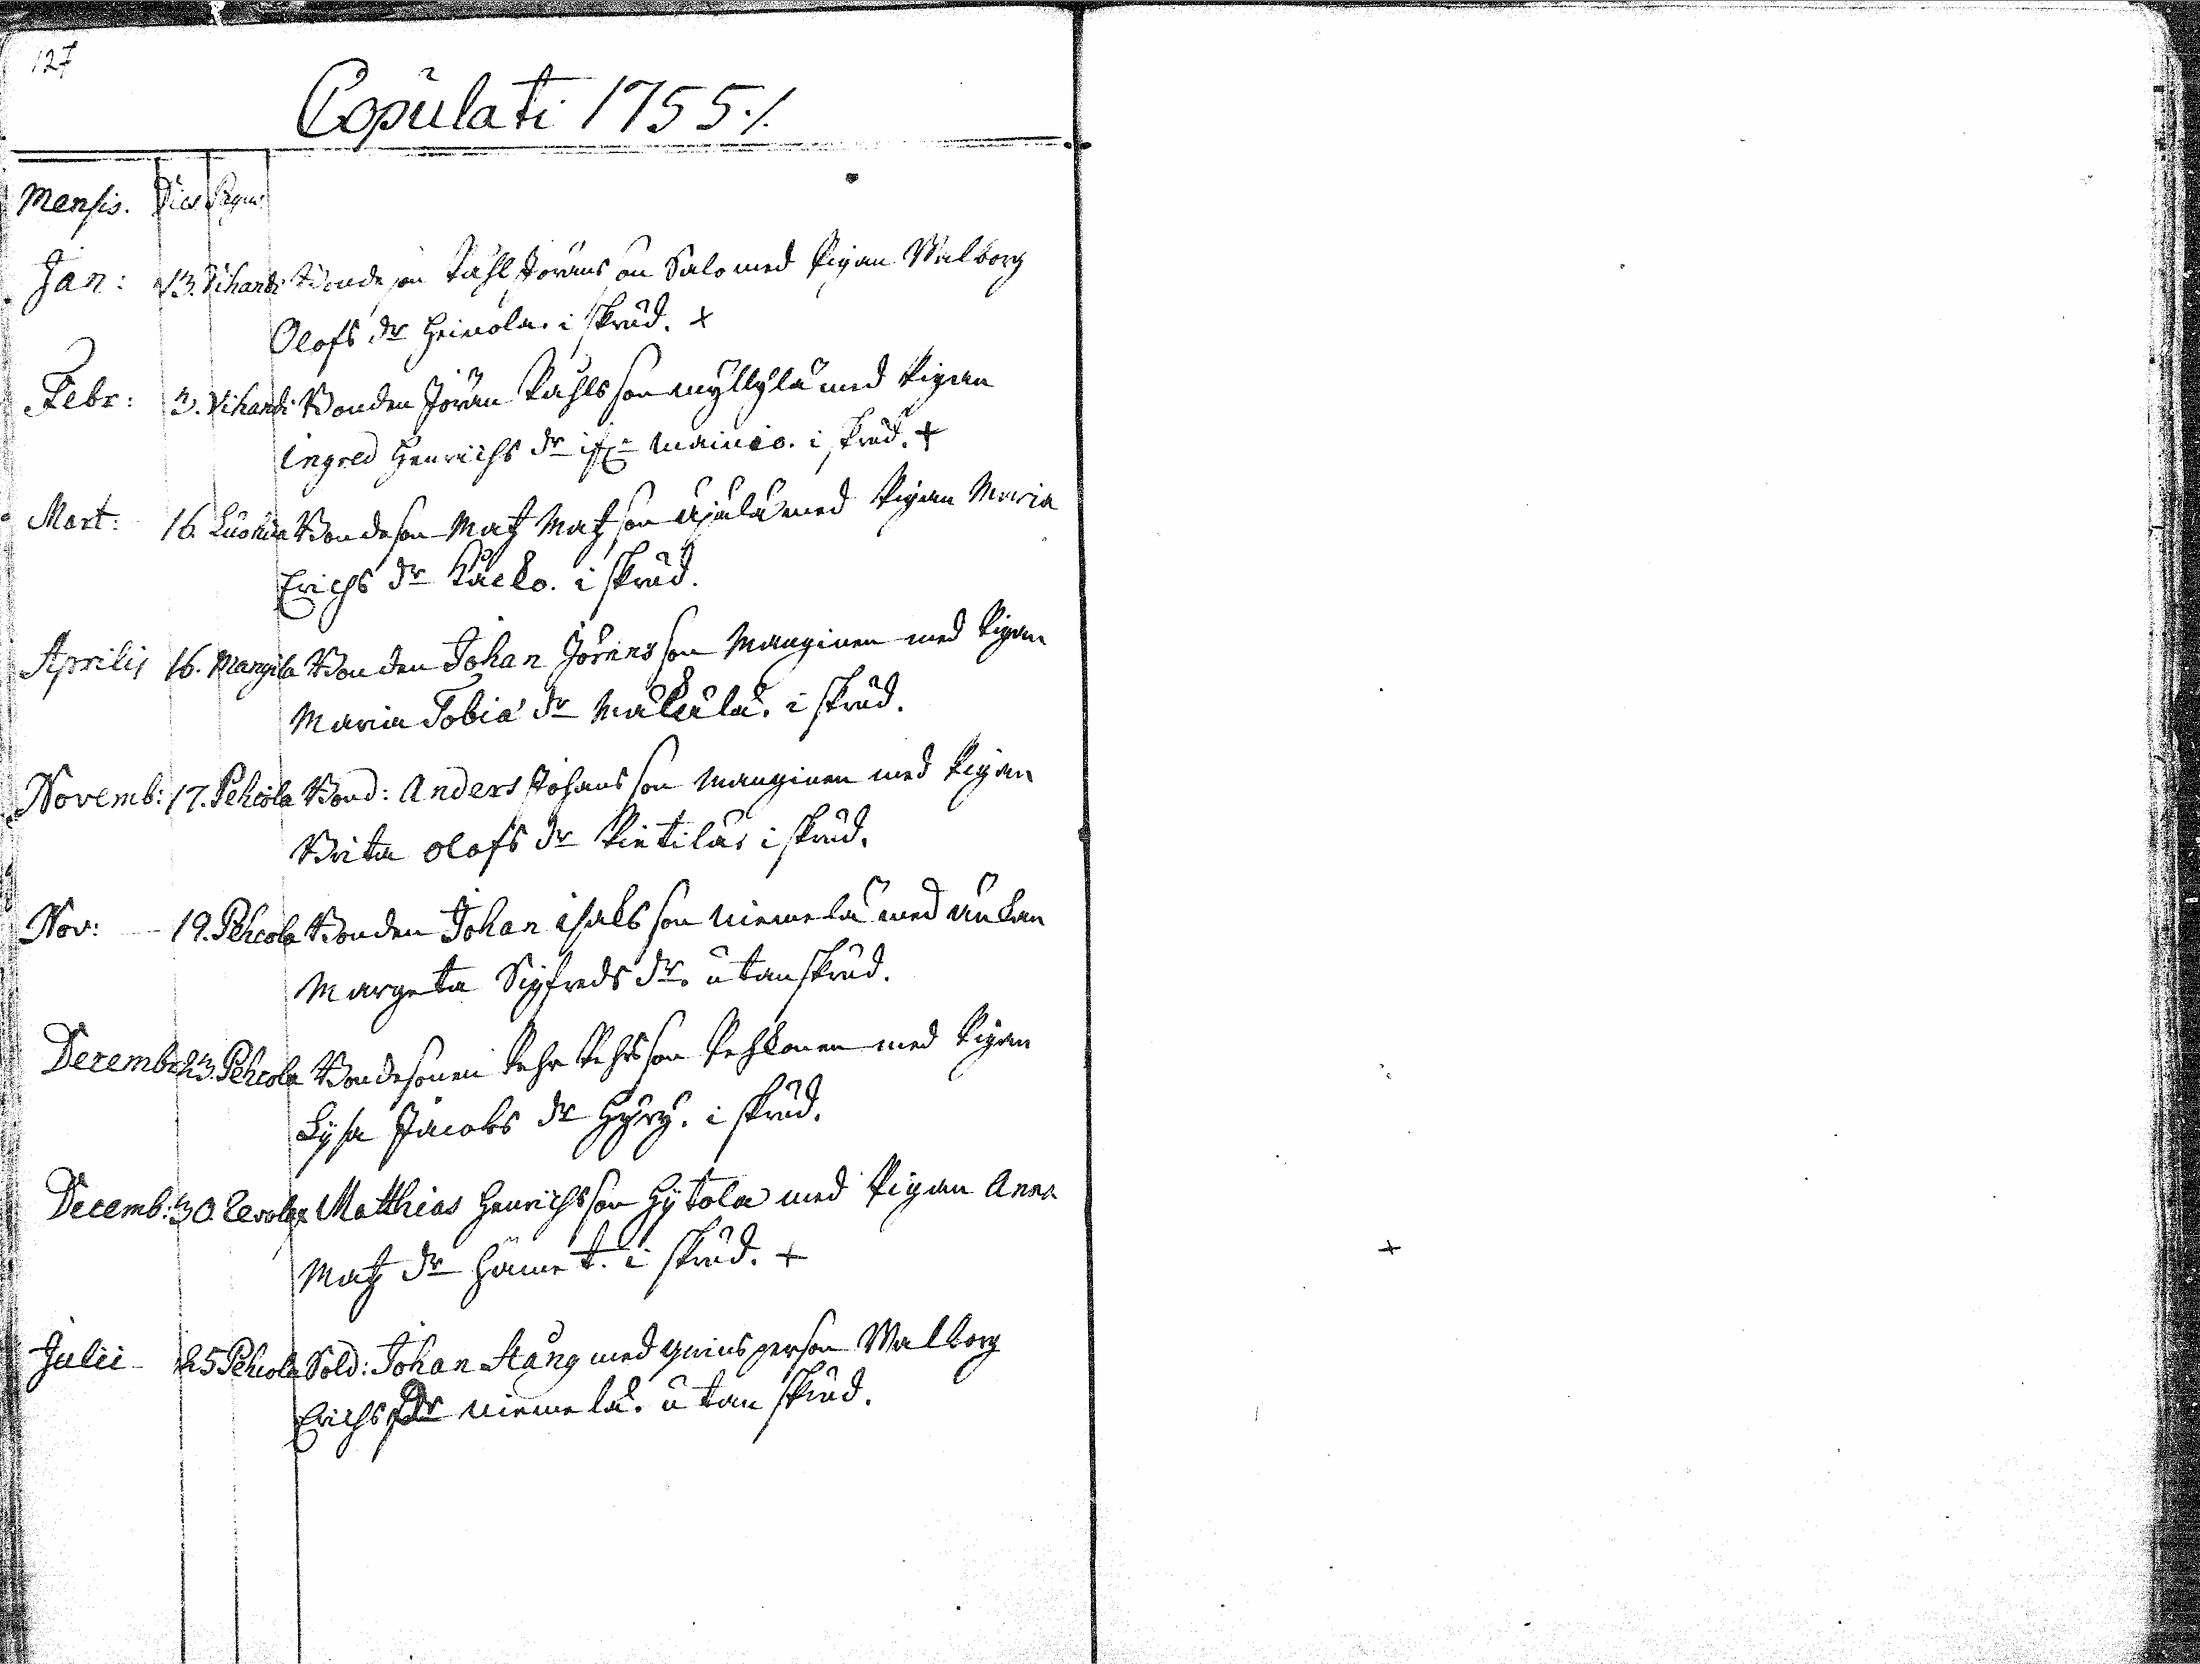 127
Copulati 1755./.
Mensis. Dies Pagus
Jan: 13. Vihandi Bondeson Påhl Jöransson Salo med Pigan Walborg
Olofs dr Heinola. i skrud. +
Febr: 3. Vihandi Bonden Jöran Påhlsson Myllylä med Pigan
Ingred Henrichs dr Mainio. i skrud. +
Mart: 16. Luohua Bondeson Matz Matzson Ajala med Pigan Maria
Erichs dr Kacko. i skrud.
Aprilis 16. Mangila Bonden Johan Jöransson Manginen med Pigan
Maria Tobiæ dr Mäkälä. i skrud.
Novemb: 17. Pehcola Bond: Anders Johansson Manginen med Pigan
Brita Olofs dr Pietilä. i skrud.
Nov: 19. Pehcola Bonden Johan Isaksson Niemelä med Änkan
Margeta Sigfreds dr. utan skrud.
Decemb: 23. Pehcola Bondesonen Pehr Pehrsson Pehkonen med Pigan
Lysa Jacobs dr Hyry. i skrud.
Decemb: 30. Revolax Matthias Henrichsson Hytola med Pigan Anna
Matz dr Hämet. i skrud. +
Julii 25 Pehcola Sold: Johan Stång med qwinsperson Walborg
Erichs Dr Niemelä. utan skrud.